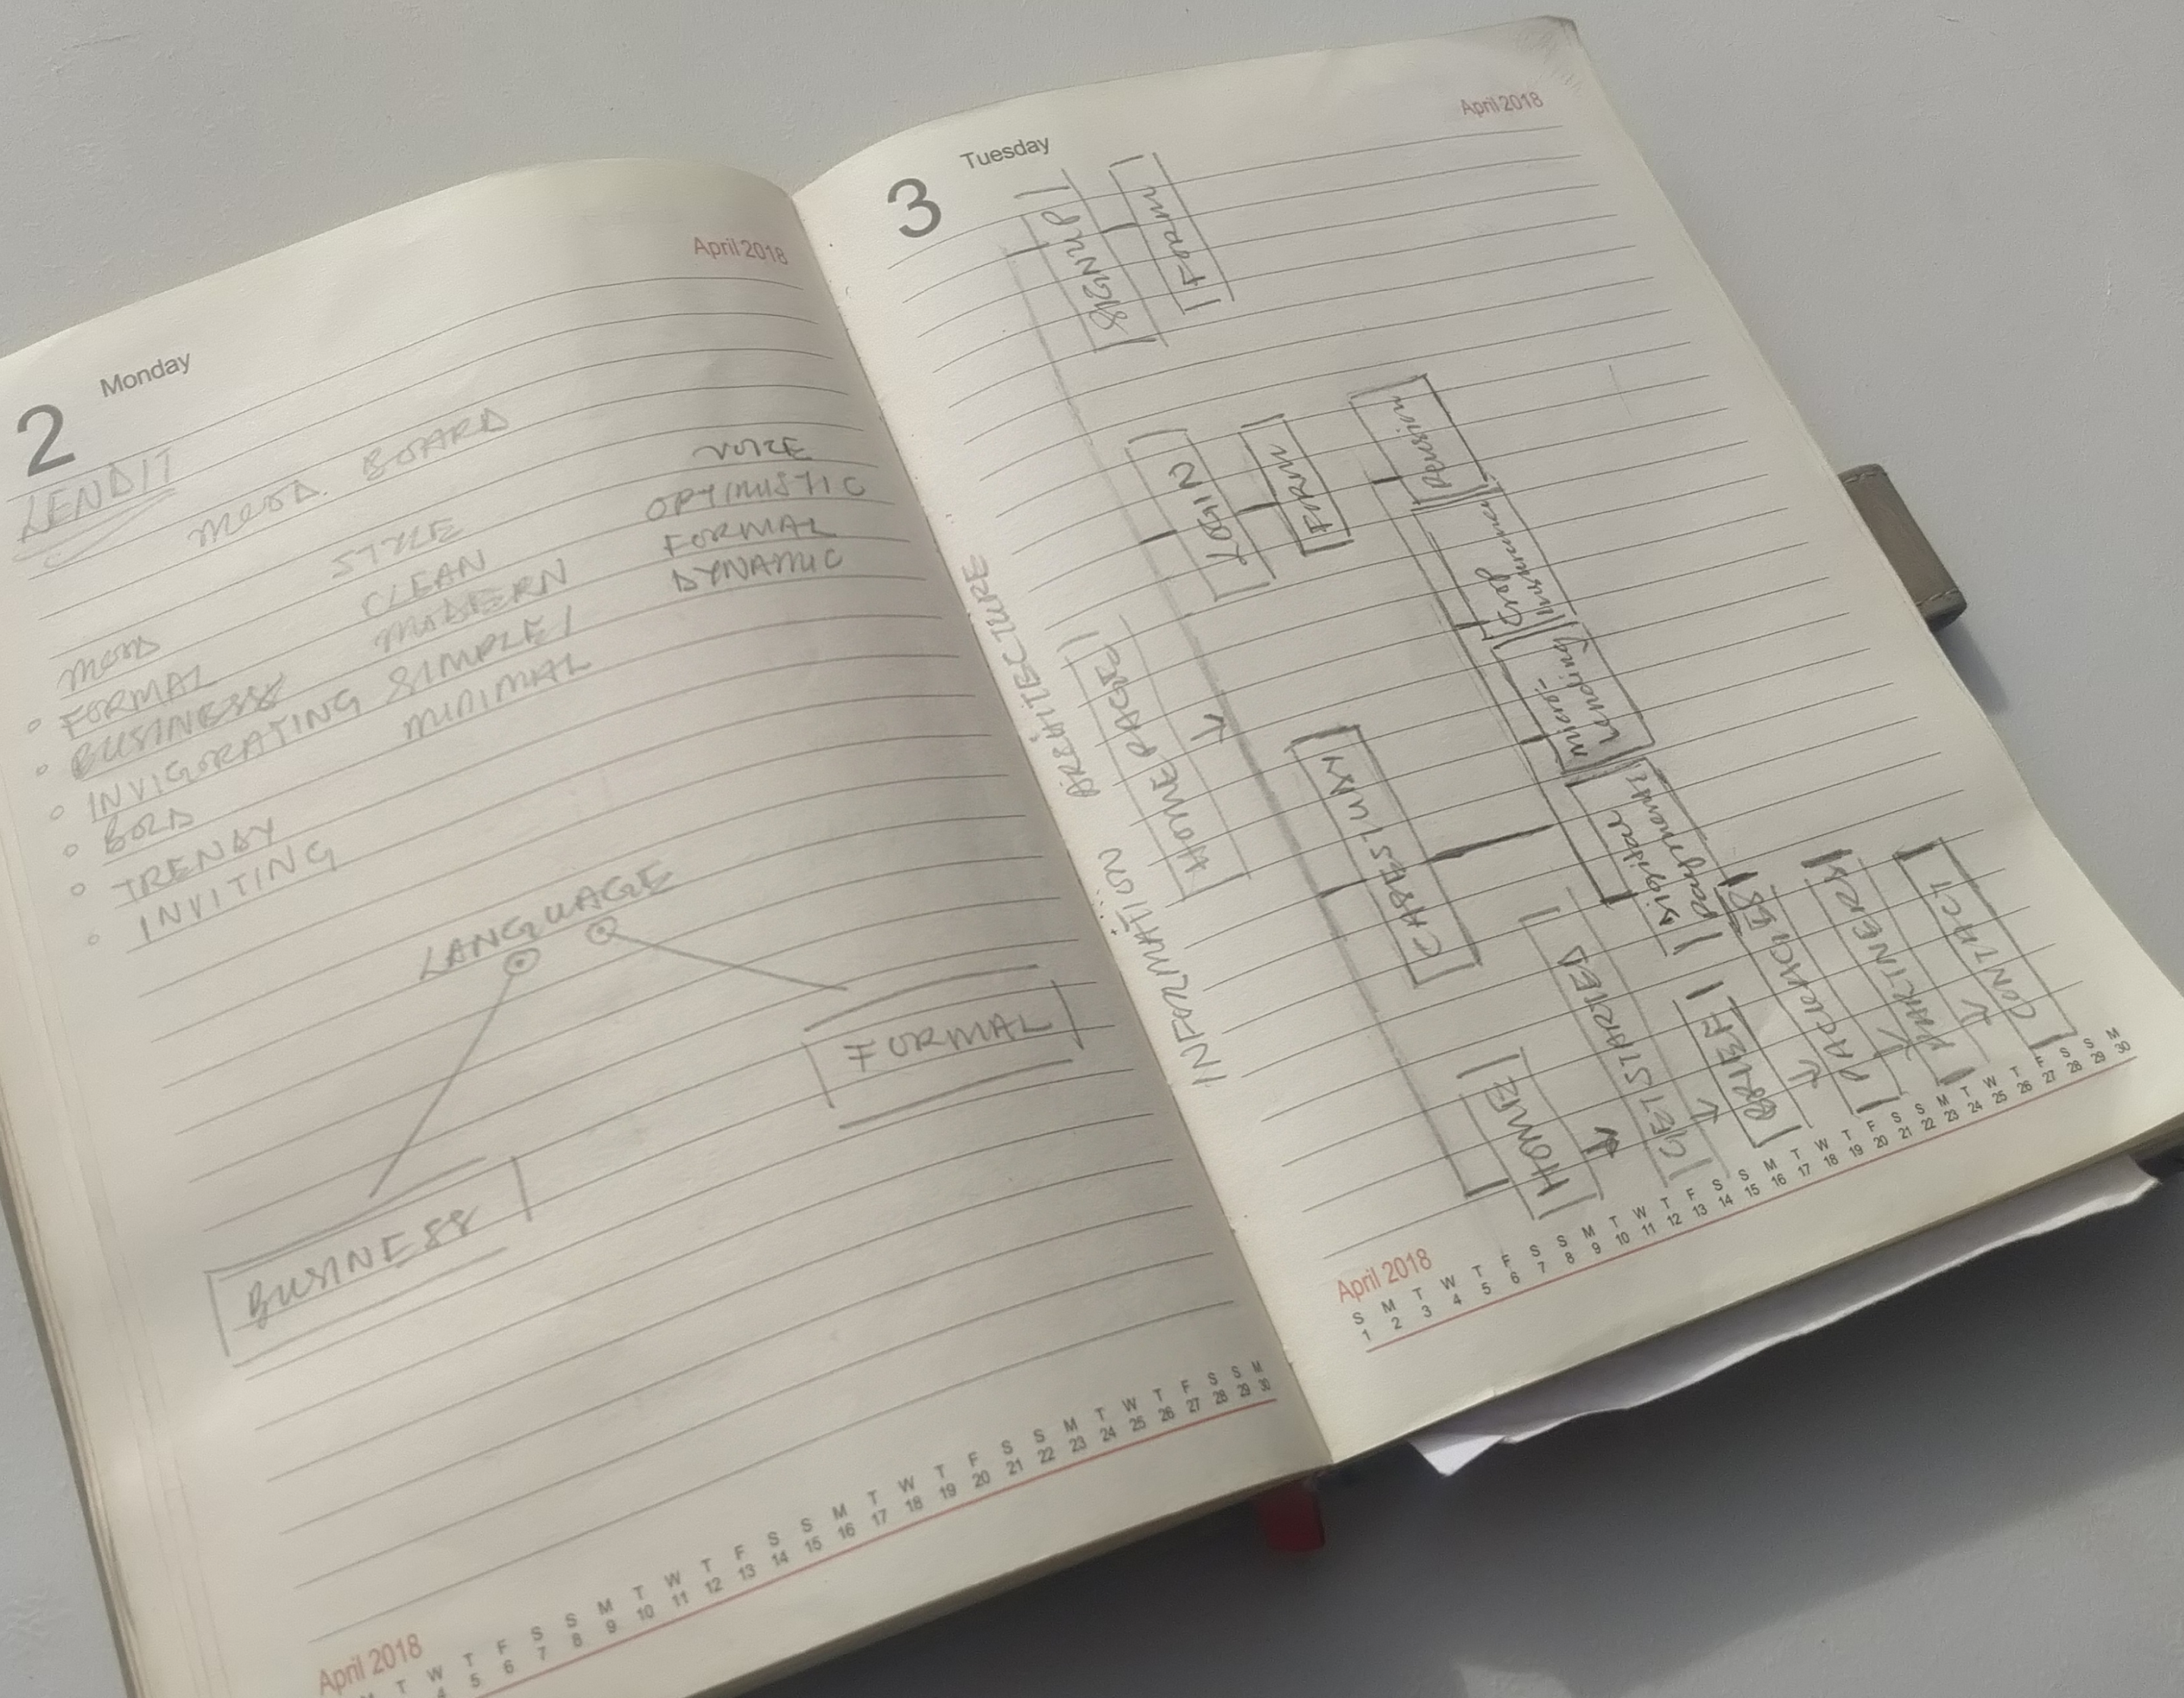 2 Monday
April 2018
LENDIT
MOOD BOARD
MOOD
FORMAL
BUSINESS
INVIGORATING
BOLD
TRENDY
INVITING
STYLE
CLEAN
MODERN
SIMPLE/
MINIMAL
VOICE
OPTIMISTIC
FORMAL
DYNAMIC
LANGUAGE
BUSINESS
FORMAL
April 2018
T W T F S S M T W T F S S M T W T F S S M T W T F S S M
4 5 6 7 8 9 10 11 12 13 14 15 16 17 18 19 20 21 22 23 24 25 26 27 28 29 30
3 Tuesday
April 2018
INFORMATION ARCHITECTURE
HOME PAGE
HOME
GET STARTED
BRIEF
PARTNERS
CONTACT
CASE STUDY
Digital
Payments
micro-
Lending
Crop
Insurance
Pension
LOGIN
FORM
SIGNUP
FORM
April 2018
S M T W T F S S M T W T F S S M T W T F S S M T W T F S S M
1 2 3 4 5 6 7 8 9 10 11 12 13 14 15 16 17 18 19 20 21 22 23 24 25 26 27 28 29 30